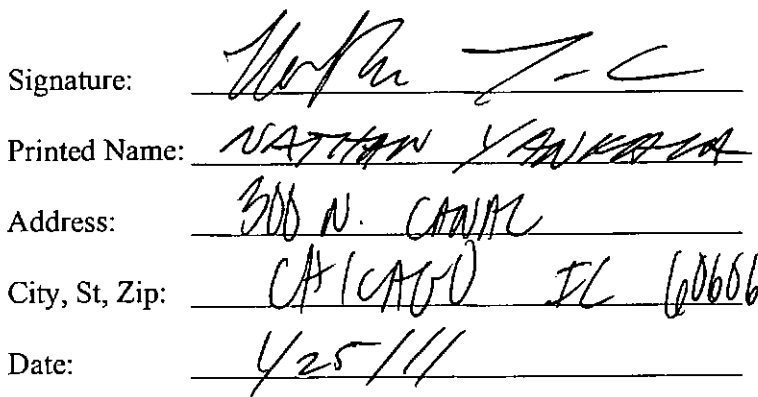 Signature:
Printed Name: NATHAN
Address: 300 N. CANAL
City, St, Zip: CHICAGO IL 60606
Date: 4/25/11